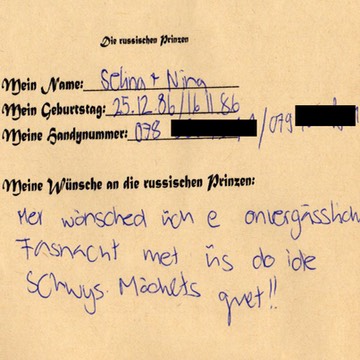 Die russischen Prinzen
Mein Name: Selina + Nina
Mein Geburtstag: 25.12.86/16.11.86
Meine Handynummer: 078 /079
Meine Wünsche an die russischen Prinzen:
Mer wönsched üch e onvergässlich
Fasnacht met üs do ide
Schwys. Machets guet!!